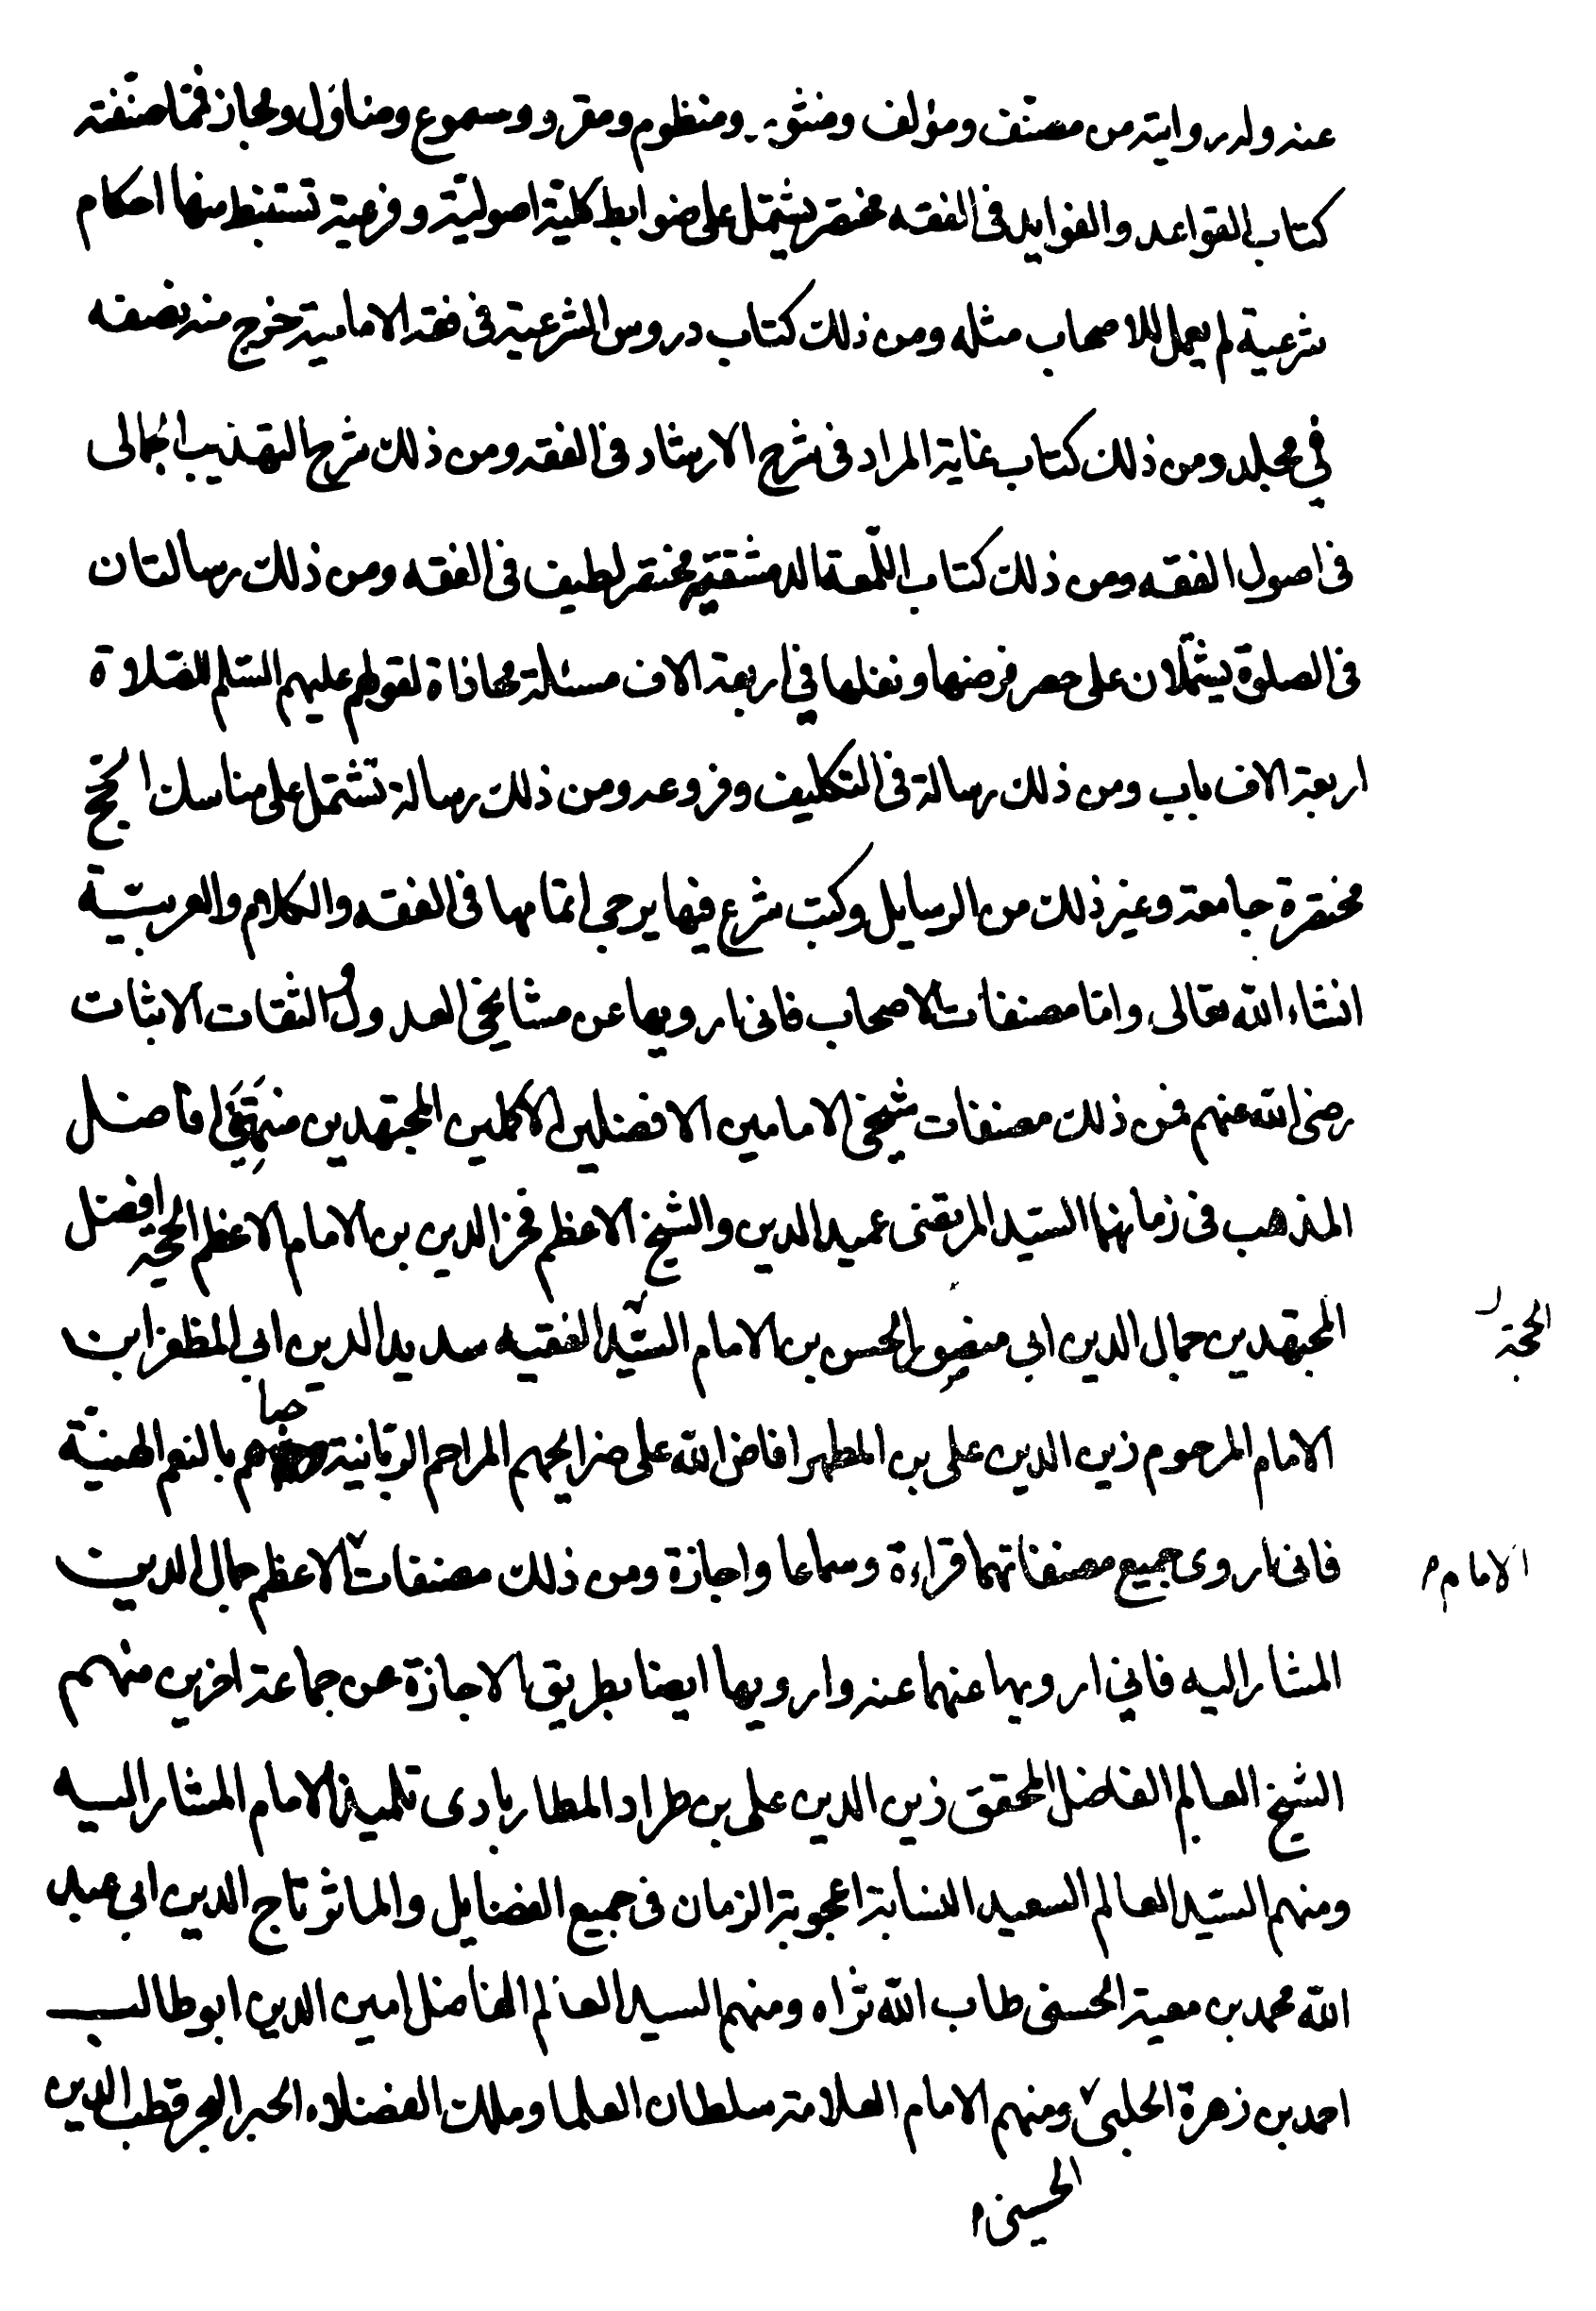 عنه وله روايته من مصنّف ومؤلف ومنثور ومنظوم ومقرو ومسموع ومناول ومجاز فمّا صنّفته
كتاب القواعد والفوايد فى الفقه مختصر يشتمل على ضوابط كليّة اصوليّة وفرعية تستنبط منها احكام
شرعية لم يعمل للاصحاب مثله ومن ذلك كتاب دروس الشرعية فى فقه الامامية خرج منه نصفه
في مجلد ومن ذلك كتاب غاية المراد فى شرح الارشاد فى الفقه ومن ذلك شرح التهذيب الجمالى
فى اصول الفقه ومن ذلك كتاب اللّمعة الدمشقيّة مختصر لطيف فى الفقه ومن ذلك رسالتان
فى الصلوة يشتملان على حصر فرضها ونفلها في اربعة الاف مسئلة محاذاة لقولهم عليهم السّلم للصّلاة
اربعة الاف باب ومن ذلك رسالة فى التكليف وفروعه ومن ذلك رسالة تشتمل على مناسك الحجّ
مختصرة جامعة وغير ذلك من الرسايل وكتب شرع فيها يرجى اتمامها فى الفقه والكلام والعربيّة
انشاء الله تعالى وامّا مصنفات الاصحاب فانى ارويها عن مشايخى العدول والثقات الاثبات
رضى الله عنهم فمن ذلك مصنفات شيخى الامامين الافضلين الاكملين المجتهدين منتهى افاضل
المذهب فى زمانهما السيّد المرتضى عميد الدين والشيخ الاعظم فخر الدين بن الامام الاعظم الحجة افضل
المجتهدين جمال الدين ابى منصور الحسن بن الامام السيّد الفقيه سديد الدين ابى المظفر ابن
الحجة
الامام المرحوم زين الدين على بن المطهر افاض الله على ضرايحهم المراحم الربّانية وحباهم بالنعم الهنيّة
فانى اروى جميع مصنفاتهما قراءة وسماعا واجازة ومن ذلك مصنفات الاعظم جمال الدين
الامام
المشار اليه فاني ارويها عنهما عنه وارويها ايضا بطريق الاجازة عن جماعة اخرين منهم
الشيخ العالم الفاضل المحقق زين الدين على بن طراد المطاربادى تلميذ الامام المشار اليه
ومنهم السيّد العالم السعيد النسابة اعجوبة الزمان فى جميع الفضايل والماثر تاج الدين ابى عبد
الله محمد بن معية الحسنى طاب الله ثراه ومنهم السيد العالم الفاضل امين الدين ابو طالب
احمد بن زهرة الحلبى ومنهم الامام العلامة سلطان العلما وملك الفضلاء الحبر البحر قطب الدين
الحسينى